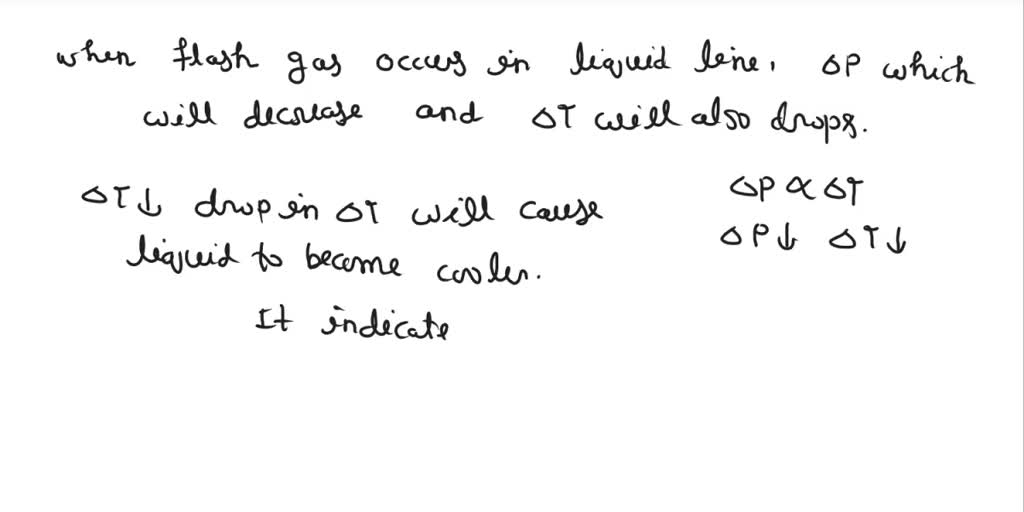 when flash gas occurs in liquid line, ΔP which
will decrease and ΔT will also drops.
ΔT↓ drop in ΔT will cause
liquid to become cooler.
It indicate
ΔP ∝ ΔT
ΔP↓ ΔT↓